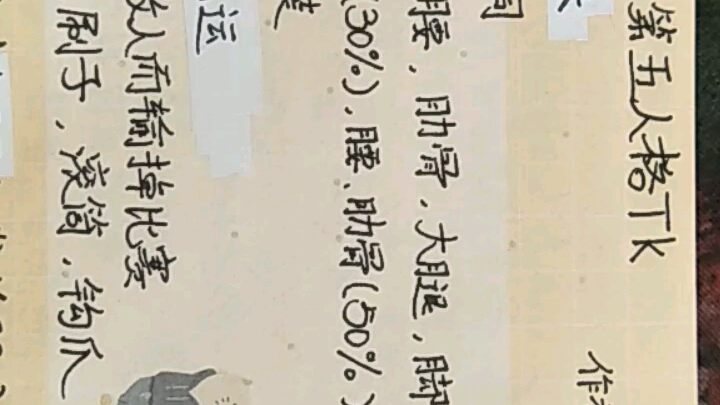 第五人格Tk
作
腰，肋骨，大腿，脚
(30%)，腰、肋骨(50%)
运
敌人而输掉比赛
刷子，滚筒，钩爪